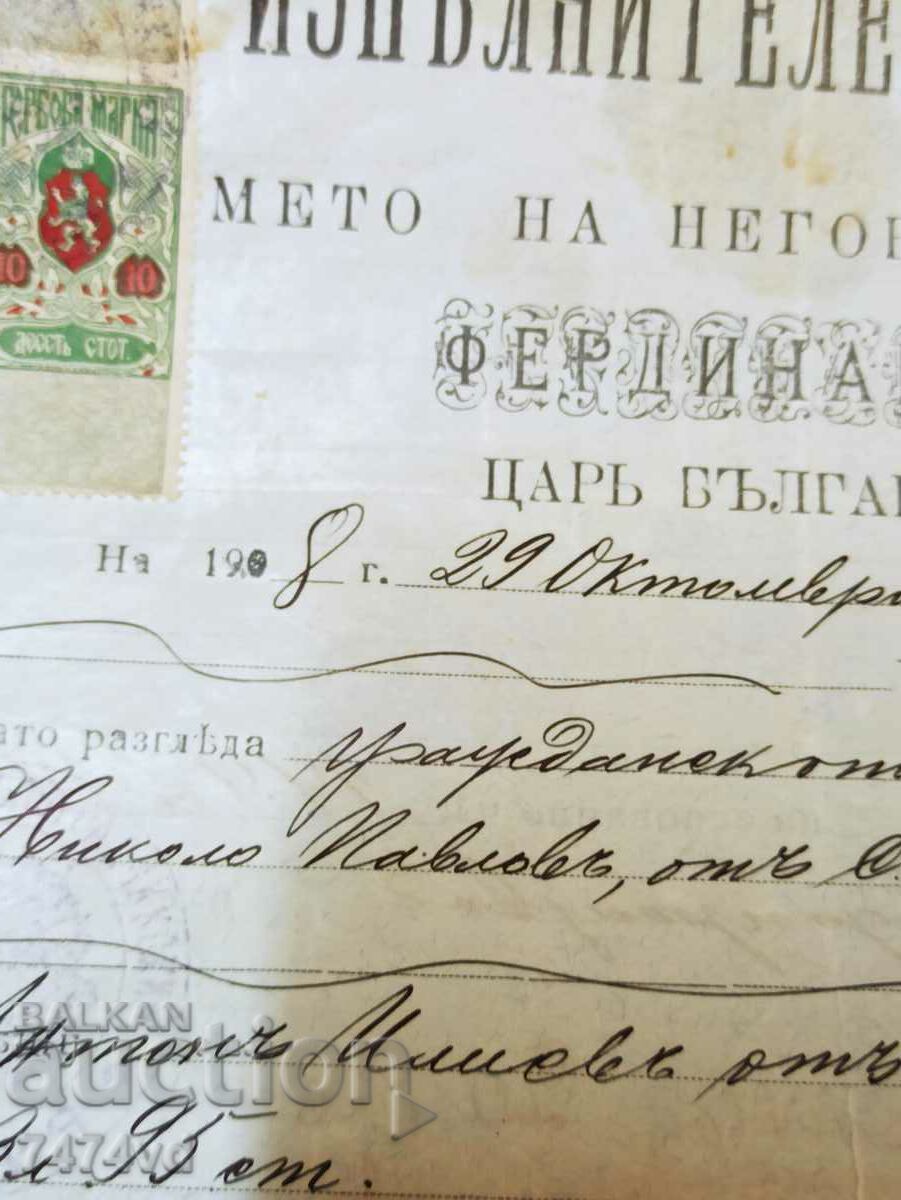 ИЗПЪЛНИТЕЛЕ
ГЕРБОВА МАРКА
10 10
ДЕСЕТЬ СТОТ.
МЕТО НА НЕГОВ
ФЕРДИНА
ЦАРЬ БЪЛГАР
На 1908 г. 29 Октомври
ато разглѣда гражданскот
Никола Павловъ, отъ с.
Антонъ Илиевъ отъ
95 ст.
BALKAN
auction
7474vd